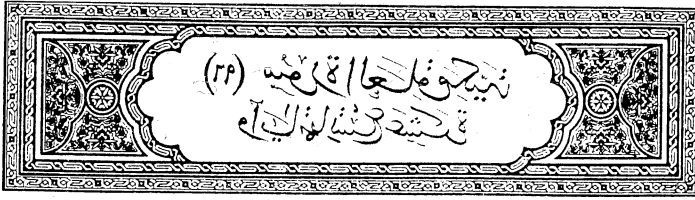 (٩٦) سورة العلق مكية
وآياتها تسع عشرة